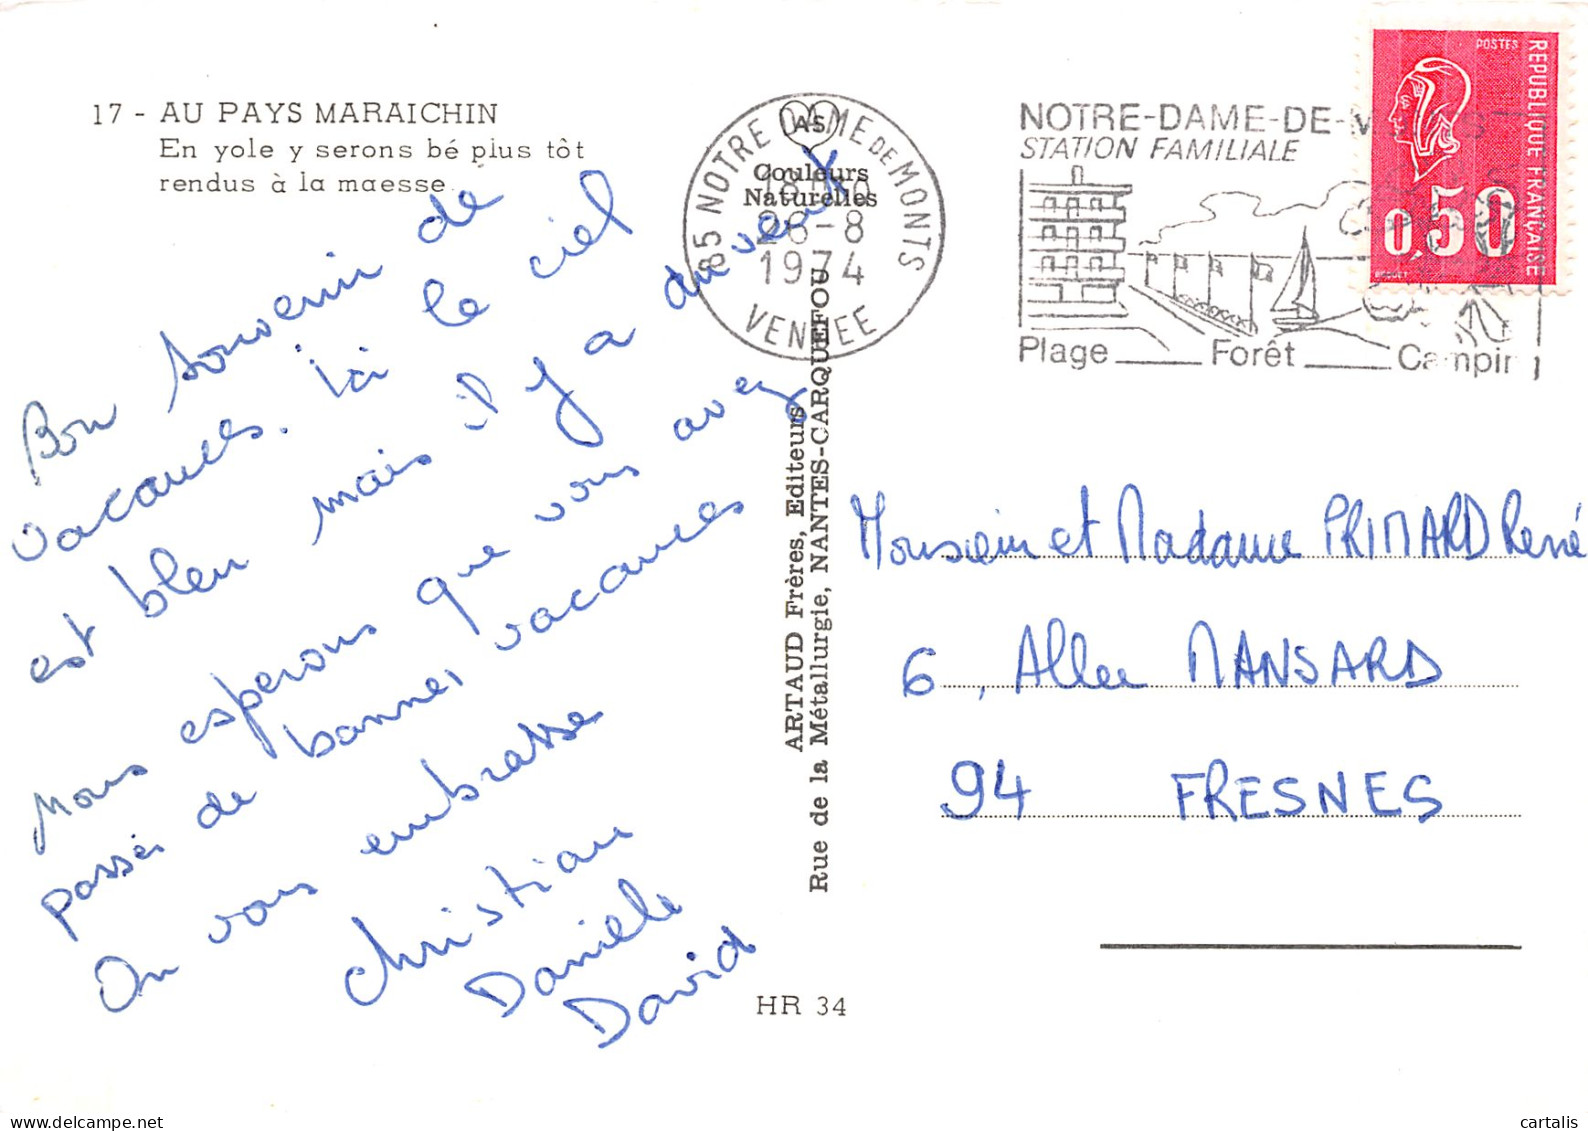 17 - AU PAYS MARAICHIN
En yole y serons bé plus tôt
rendus à la maesse
Bon souvenir de
vacances. Ici le ciel
est bleu mais il y a du vent
Nous esperons que vous avez
passés de bonnes vacances
On vous embrasse
Christian
Danièle
David
AS
Couleurs
Naturelles
85 NOTRE DAME DE MONTS
26-8
1974
VENDEE
NOTRE-DAME-DE-M
STATION FAMILIALE
Plage Forêt Campin
POSTES
REPUBLIQUE FRANÇAISE
0,50
BEQUET
ARTAUD Frères, Editeurs
Rue de la Métallurgie, NANTES-CARQUEFOU
Monsieur et Madame PRIMARD René
6, Allee MANSARD
94 FRESNES
HR 34
cartalis